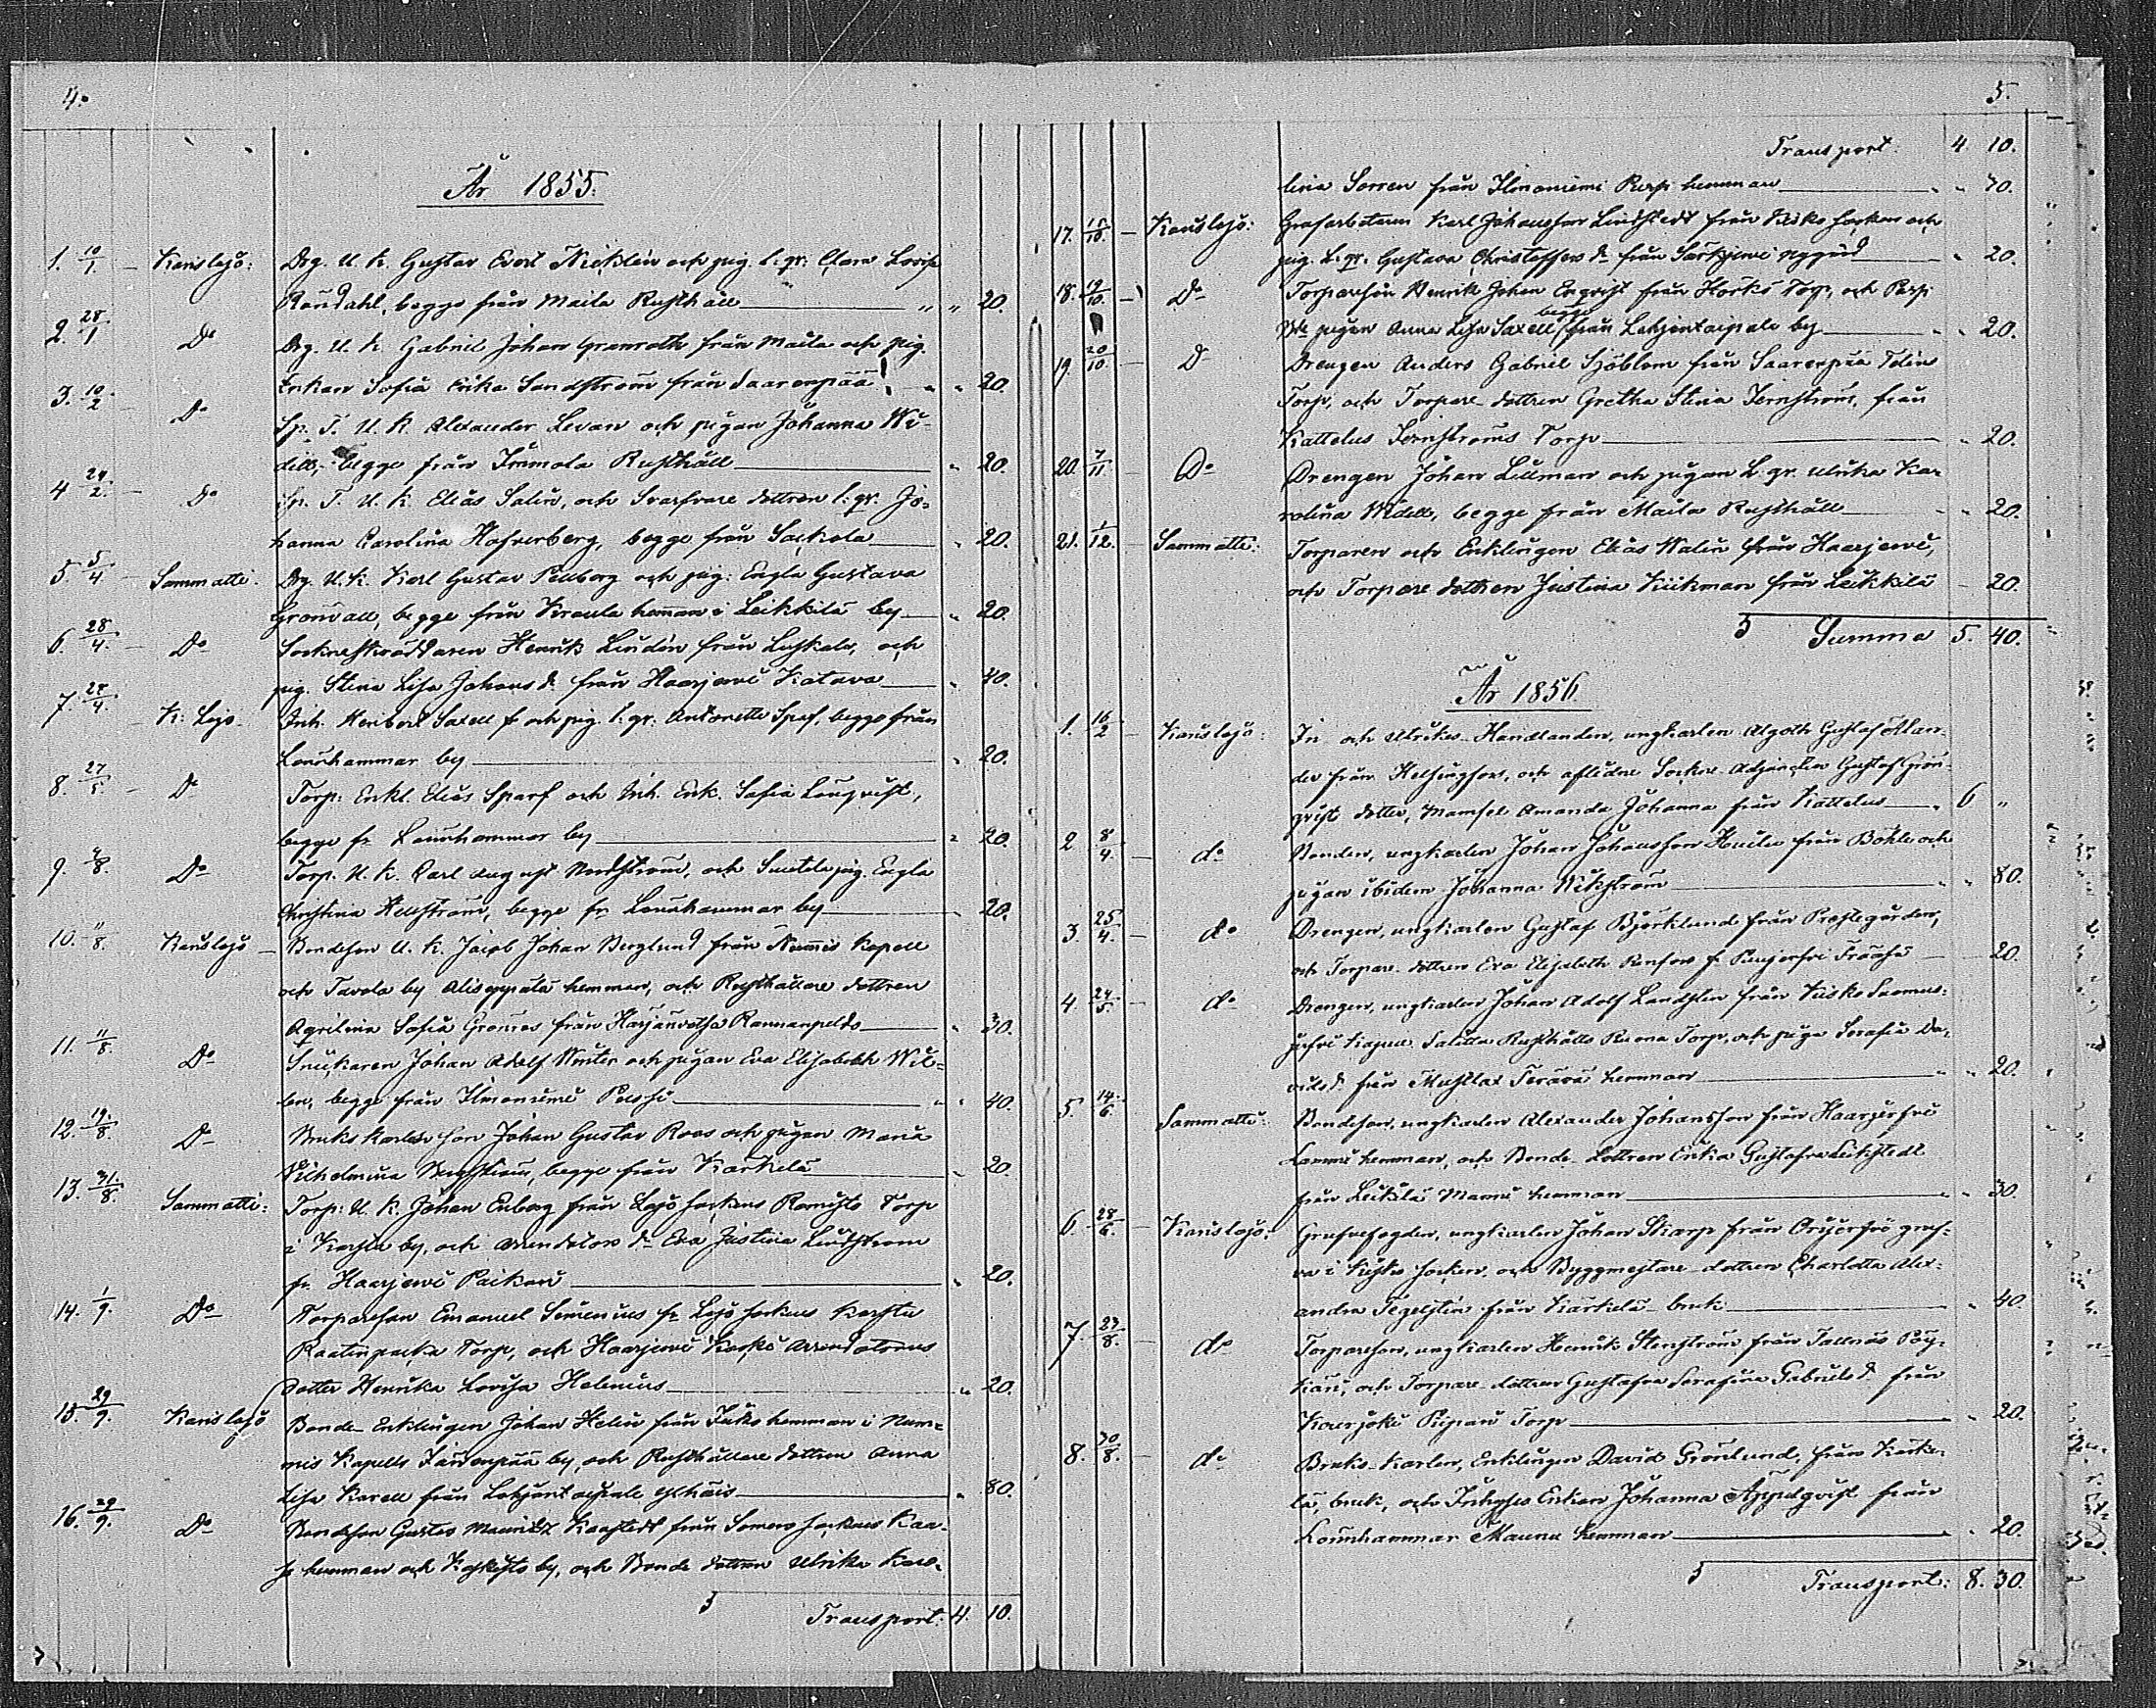 4.
År 1855.
1. 10/1. – Karislojo: Drg. U. K. Gustav Evert Nicklén och pig. l: gr: Clara Lovisa
Randahl, begge från Maila Rusthåll „ „ 20.
2. 28/1 Do Drg. U. K. Gabriel Johan Granroth från Maila och pig.
Enkan Sofia Erika Sandström från Saarenpää „ 20.
3. 10/2 – Do Sp. T. U. K. Alexander Levan och pigan Johanna Wi-
dell, begge från Immola Rusthåll „ 20.
4 24/2. – Do Sp. T. U. K. Elias Salin, och Svarfvare dottren l: gr: Jo-
hanna Carolina Hafverberg, begge från Sackola „ 20.
5 5/4 – Sammatti. Drg. U. K. Karl Gustav Pellborg och pig: Engla Gustava
Grönvall, begge från Kraula hemman i Leikkilä by „ 20.
6. 28/4. – Do Sockneskräddaren Henrik Lindén från Luskala, och
pig. Stina Lisa Johans d. från Haarjervi Katava „ 40.
7. 28/4. – K: Lojo. Inh. Heribert Saxell fr och pig. l: gr. Antonetta Sparf, begge från
Lönnhammar by „ 20.
8. 27/5 – Do Torp: Enkl. Elias Sparf och Inh. Enk. Sofia Lönqvist,
begge fr Lönnhammar by „ 20.
9. 4/8. Do Torp. U. K. Carl August Nordström, och pig. Engla
Christina Hellström, begge fr Lönnhammar by 20.
10. 11/8. Karislojo – Bondeson U. K. Jacob Johan Berglund från Nummis Kapell
och Tavola by Alisippala hemman, och Rusthållare dottren
Agrilina Sofia Grönros från Harjanvatsa Rannanpeldo „ 30.
11. 11/8. Do Snickaren Johan Adolf Winter och pigan Eva Elisabeth Wil-
len, begge från Ilmoniemi Passi „ 40.
12. 19/8. Do Brukskarls son Johan Gustav Roos och pigan Maria
Vilhelmina Bergström, begge från Kärkelä 20.
13. 31/8. Sammatti: Torp: U. K. Johan Enberg från Lojo sockens Ramsto Torp
i Karstu by, och Arrendators dr Eva Justina Lindström
fr. Haarjervi Paikari „ 20.
14. 1/9. Do Torpareson Emanuel Simenius fr Lojo sockens Karstu
Raatinpaika Torp, och Haarjervi Koski Arrendatorens
dotter Henrika Lovisa Helenius „ 20.
15. 29/9. Karislojo Bonde-Enklingen Johan Helin från hemman i Num-
mis Kapells Järvenpää by, och Rusthållare dottren Anna
Lisa Karell från Lohjantaipale „ 80.
16. 29/9. Do Bondeson Gustav Mauritz Kaastedt från Somero sockens Kaa-
hemman och Koskisto by, och Bonde dottren Ulrika Karo-
Transport: 4. 10.
5.
Transport. 4. 10.
lina Sorren från Ilmoniemi hemman „ „ 30.
17. 15/10. – Karislojo: Grufarbetaren Karl Johansson Lindstedt från Kisko socken och
pig. l. gr. Gustava Christoffers dr från Särkjervi nygård „ 20.
18. 19/10. – Do Torpareson Henrik Johan Enqvist från Horks Torp, och
pigan Anna Lisa Saxell begge från Lohjantaipale by „ 20.
19. 20/10. – Do Drengen Anders Gabriel Sjöblom från Saarenpää Tolin
Torp, och Torpare-dottren Gretha Stina Jernström, från
Kattelus Jernströms Torp „ 20.
20. 7/11 – Do Drengen Johan Lillman och pigan l. gr. Ulrika Ka-
rolina Widell, begge från Maila Rusthåll „ 20.
21. 1/12. – Sammatti: Torparen och Enklingen Elias Walin från Haarjervi,
och Torpare dottren Justina Kiikman från Leikkilä – 20.
Summa 5. 40.
År 1856.
1. 16/2 – Karislojo: In- och Utrikes-Handlanden, ungkarlen Algoth Gustaf Ålan-
der från Helsingfors, och aflidne Sockne-Adjunkten Gustaf Grön-
qvist dotter, Mamsel Amanda Johanna från Kattelus „ 6 „
2 8/4. – do Bonden, ungkarlen Johan Johansson från Böhle och
pigan ibidem Johanna Wikström „ „ 80.
3. 25/4. – do Drengen, ungkarlen Gustaf Björklund från Prestegården,
och Torpare-dottren Eva Elisabeth Renfors fr Pusjerfvi 20.
4. 24/5. – do Drengen, ungkarlen Johan Adolf Landstén från Kisko Suomus-
jerfvi Kapell Salitta Rusthålls Ruona Torp, och piga Serafia Da-
vids d. från Mustlax Terävä hemman „ „ 20.
5. 14/6. Sammatti: Bondeson, ungkarlen Alexander Johansson från Haarjerfvi
Lammi hemman, och Bonde-dottren Erika Gustafva Leikstedt
från Leikilä Manni hemman „ 30.
6. 28/6. – Karislojo: Gruffogden, ungkarlen Johan Skarp från Orijerfvi gruf-
va i Kisko socken, och Byggmestare-dottren Charlotta Alex-
andra Tegelstén från Kärkelä-bruk „ 40.
7. 23/8. – do Torpareson, ungkarlen Henrik Stenström från Tallnäs Pöy-
käri, och Torpare-dottren Gustafva Serafina Gabriels d. från
Kourjoki Piipari Torp „ 20.
8. 30/8. – do Bruks-Karlen, Enklingen David Grönlund, från Kärke-
lä, bruk, och Inhyses Enkan Johanna Appelqvist från
Lönnhammar Maunu hemman „ 20.
Transport: 8. 30.